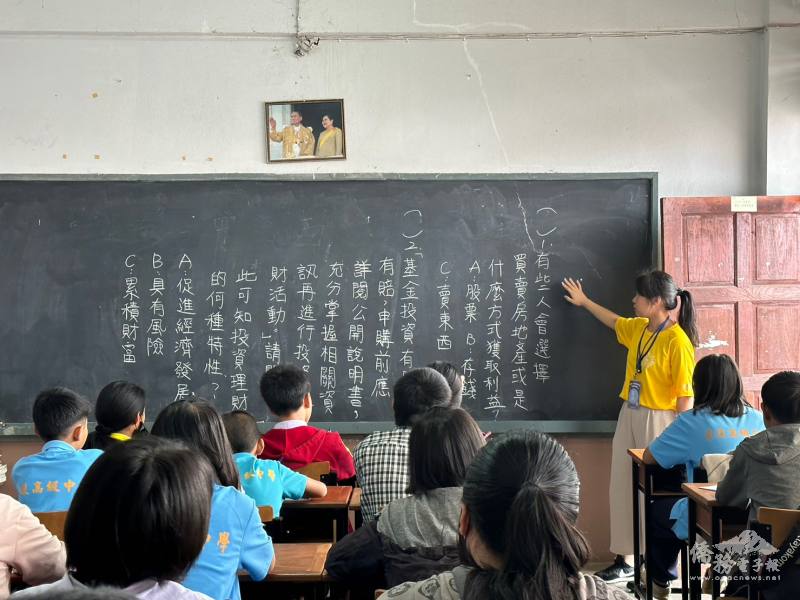 ( )1.有些人會選擇
買賣房地產或是
什麼方式獲取利益?
A:股票 B:存錢
C:賣東西
( )2.「基金投資有
有賠,申購前應
詳閱公開說明書,
充分掌握相關資
訊再進行投
財活動。」請
此可知投資理財
的何種特性?
A:促進經濟發展
B:具有風險
C:累積財富
高級中
學
僑務電子報
www.ocacnews.net